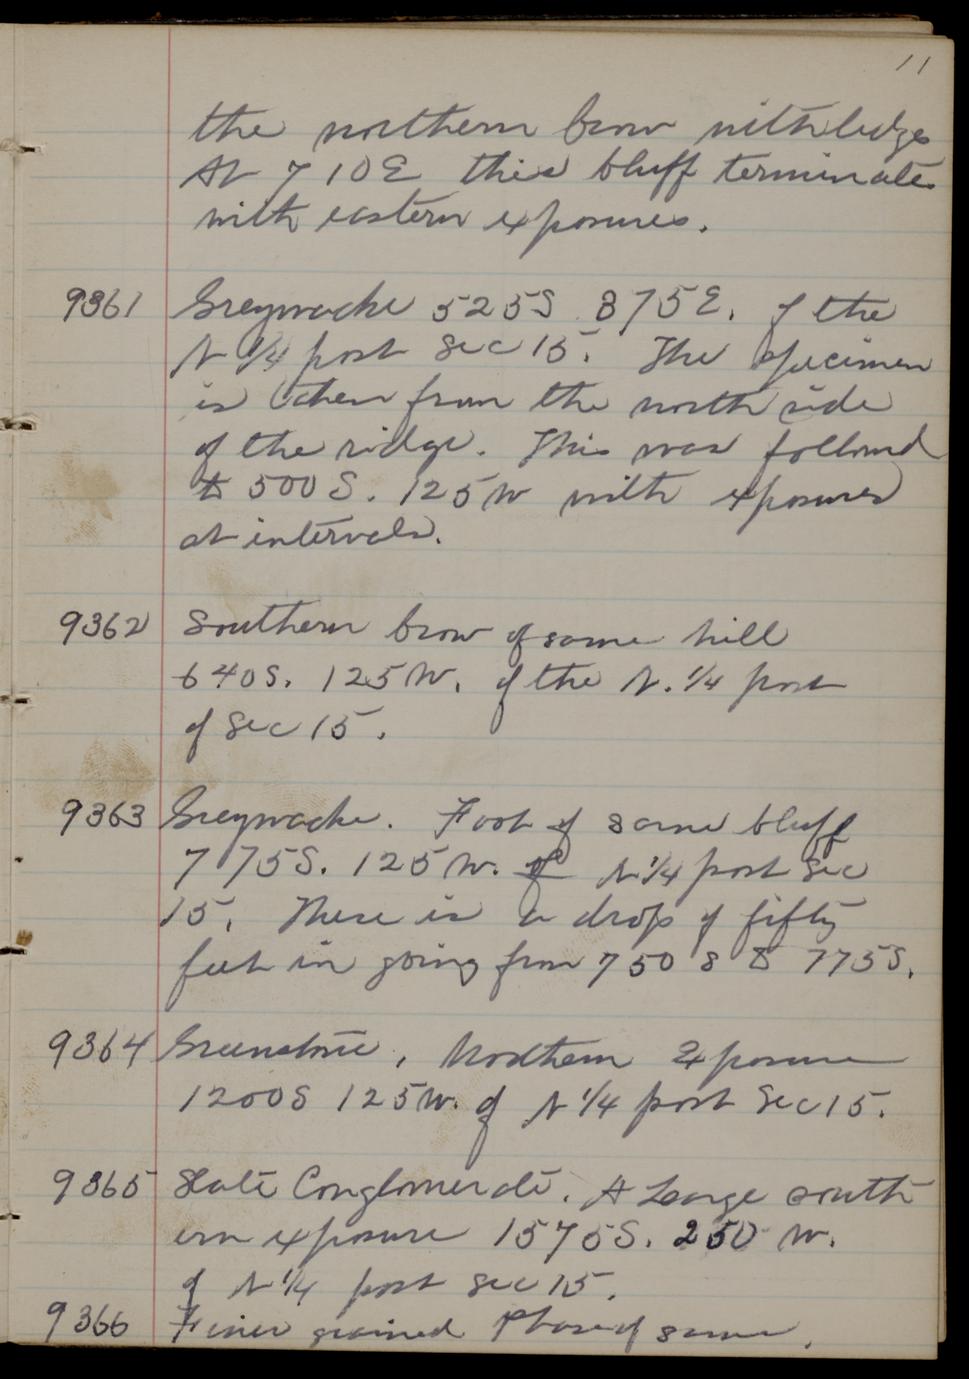 11
the northern brow with ledges
At 710E this bluff terminates
with eastern exposures.
9361 Greywacke 525S 875E. of the
N 1/4 post Sec 15. The specimen
is taken from the north side
of the ridge. This was followed
to 500S. 125W with exposures
at intervals.
9362 Southern brow of same hill
640S. 125W. of the N. 1/4 post
of Sec 15.
9363 Greywacke. Foot of same bluff
775S. 125W. of N 1/4 post Sec
15. There is a drop of fifty
feet in going from 750 S to 775S.
9364 Greenstone, Northern Exposure
1200S 125W. of N 1/4 post Sec 15.
9365 Slate Conglomerate. A Large south
ern exposure 1575S. 250 W.
of N 1/4 post Sec 15.
9366 Finer grained Phase of same.